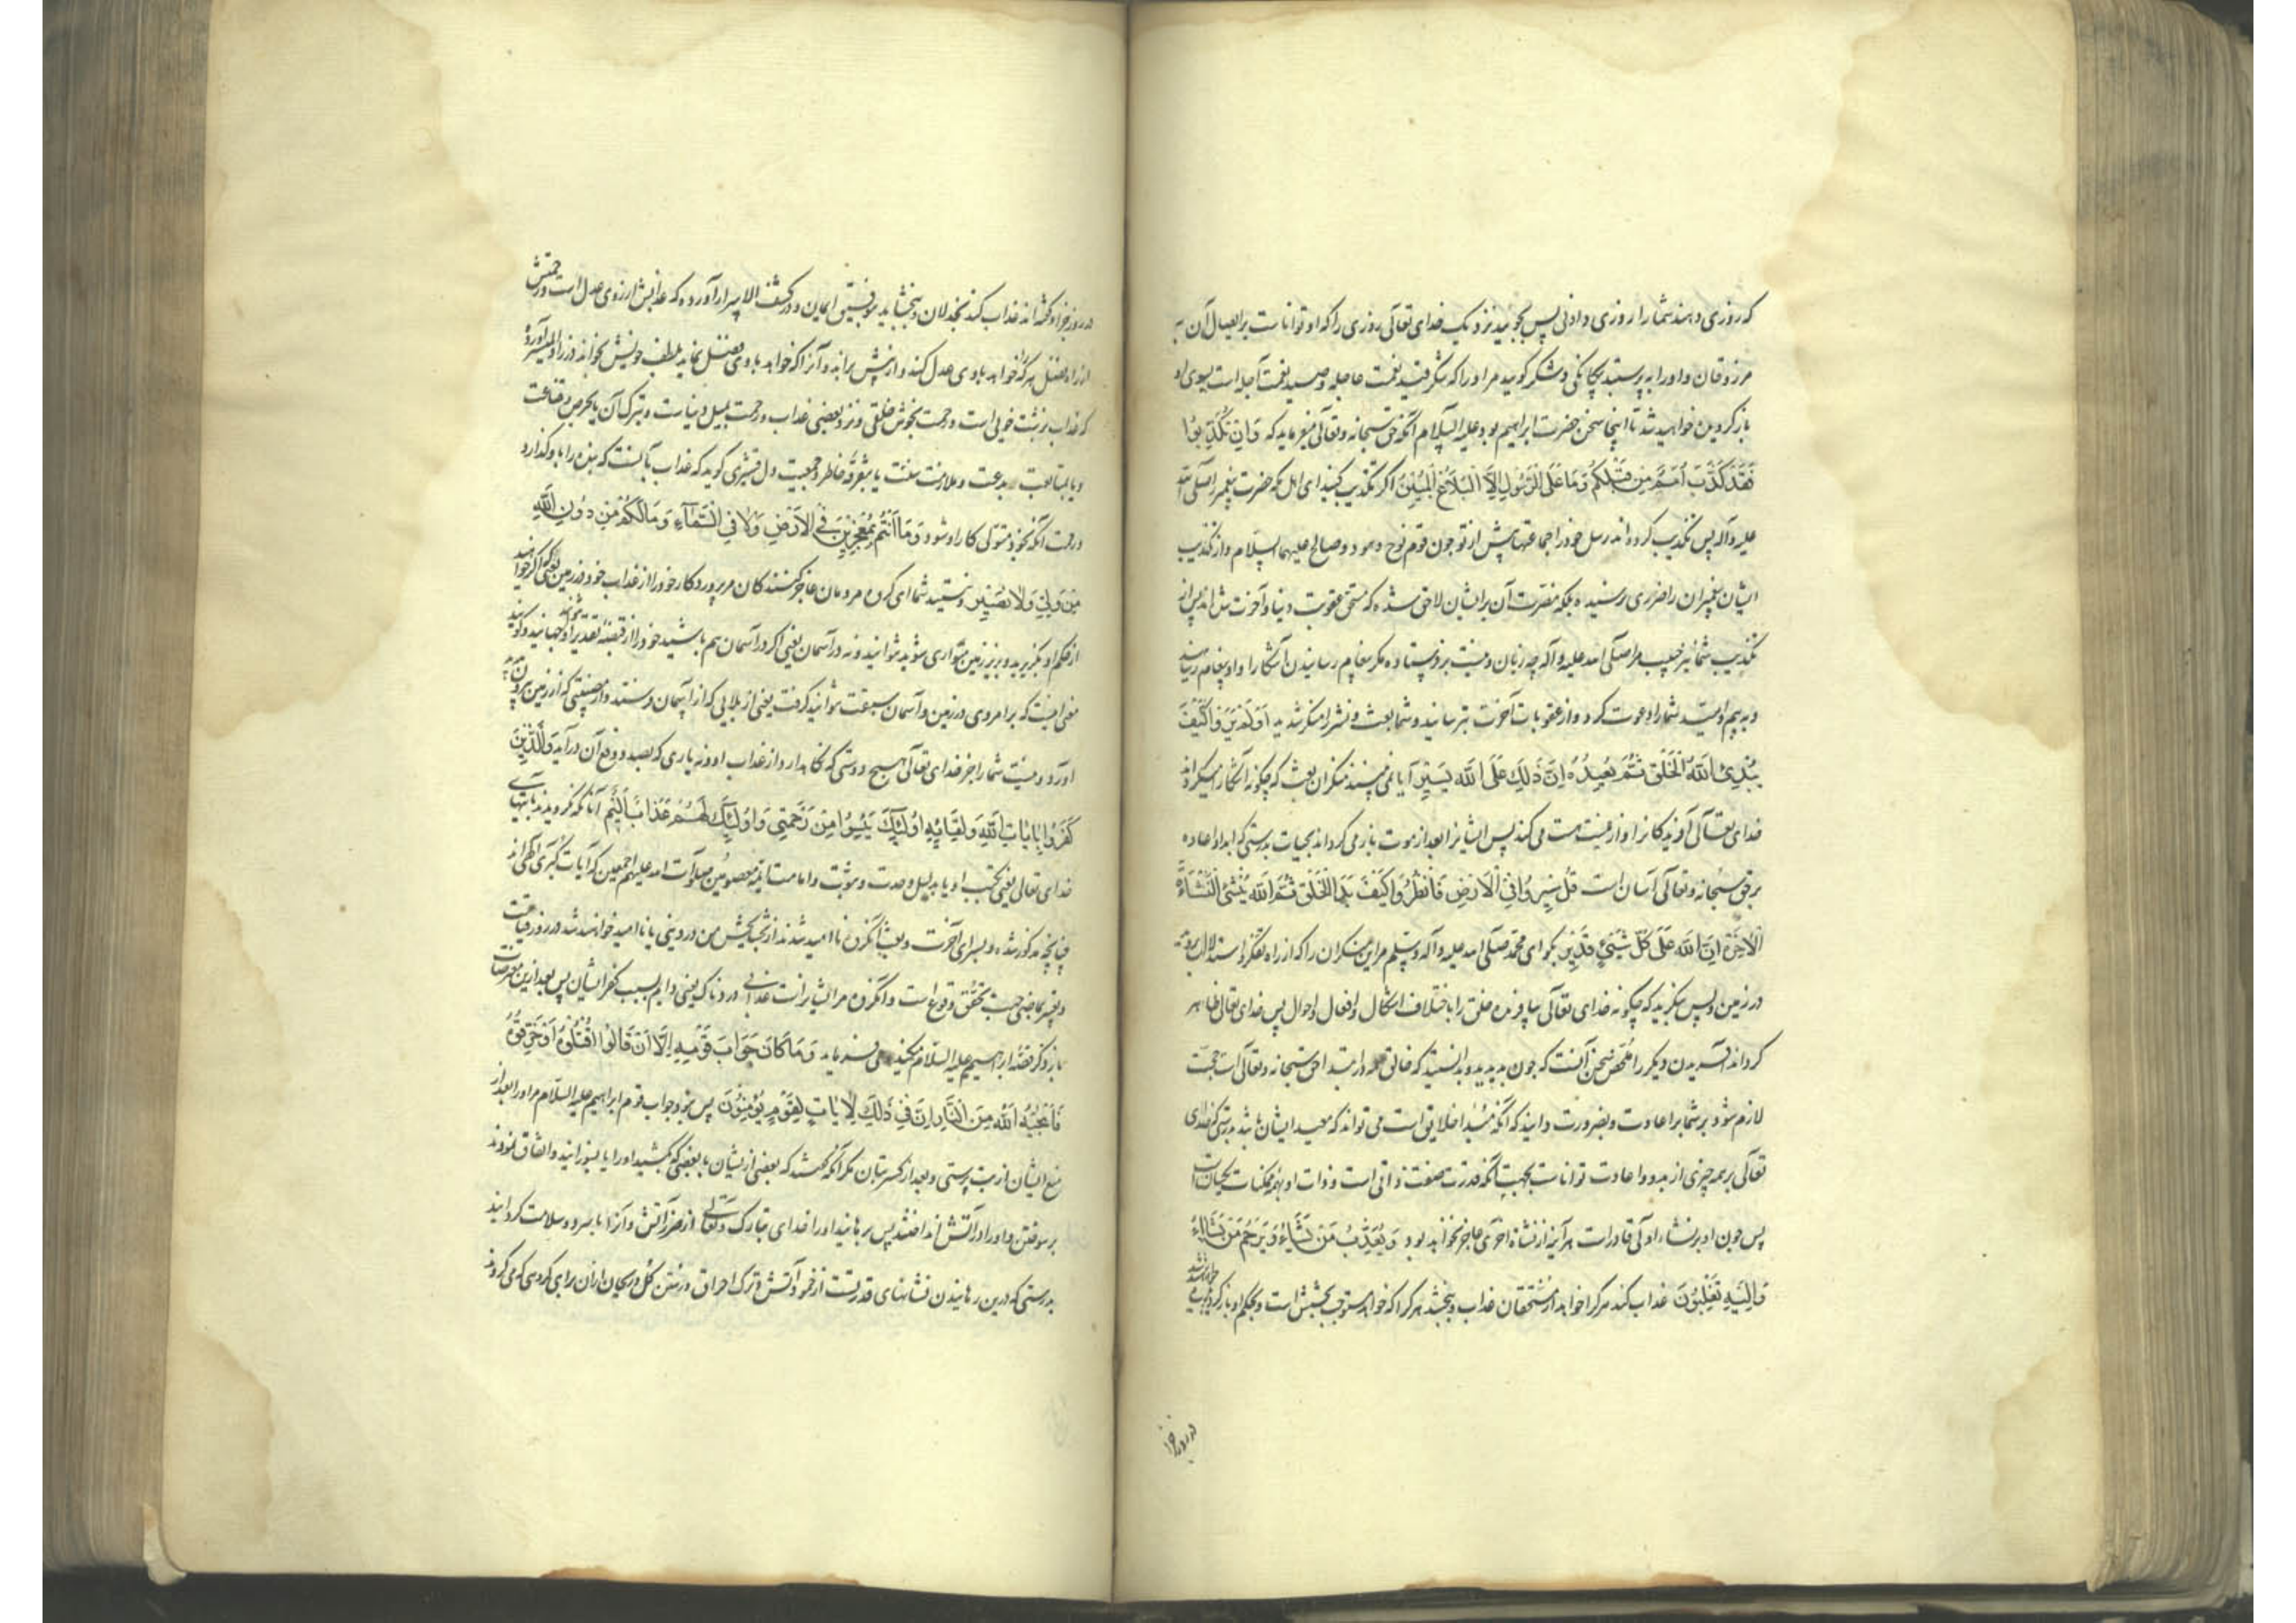 که روزی دهند شما را روزی دادنی پس بجویید نزدیک خدای تعالی روزی را که او تواناست بر ایصال آن به
مرزوقان و او را بپرستید بیگانگی و شکر گویید مر او را که شکر قید نعمت عاجله و صید نعمت آجله است بسوی او
باز گردیده خواهید شد تا اینجا سخن حضرت ابراهیم بود علیه السلام آنگه حق سبحانه و تعالی میفرماید که وَاِن تُكَذِّبُوا
فَقَدْ كَذَّبَ اُمَمٌ مِن قَبْلِكُمْ وَمَا عَلَى الرَّسُولِ اِلَّا الْبَلَاغُ الْمُبِينُ اگر تکذیب کنید ای اهل مکه حضرت پیغمبر صلی الله
علیه و آله پس تکذیب کرده‌اند رسل خود را جماعتها پیش از تو چون قوم نوح و هود و صالح علیهم السلام و از تکذیب
ایشان پیغمبران را ضرری نرسیده بلکه مضرت آن بر ایشان لاحق شده که مستحق عقوبت دنیا و آخرت شده‌اند پس از
تکذیب شما نیز حبیب مرا صلی الله علیه و آله چه زیان و نیست بر فرستاده مگر پیغام رسانیدن آشکارا و او پیغام رسانید
و به بیم و امید شما را دعوت کرد و از عقوبات آخرت بترسانید و شما بعث و نشر را منکر شدید اَوَلَمْ يَرَوْا كَيْفَ
يُبْدِئُ اللهُ الْخَلْقَ ثُمَّ يُعِيدُهُ اِنَّ ذَلِكَ عَلَى اللهِ يَسِيرٌ آیا نمی بینند منکران بعث که چگونه آشکارا میگرداند
خدای تعالی آفریدگانرا و از نیست هست می کند پس ایشانرا بعد از موت باز می گرداند بحیات بدرستی که ابدا و اعاده
بر حق سبحانه و تعالی آسان است قُلْ سِيرُوا فِي الْاَرْضِ فَانْظُرُوا كَيْفَ بَدَاَ الْخَلْقَ ثُمَّ اللهُ يُنْشِئُ النَّشْاَةَ
الْاٰخِرَةَ اِنَّ اللهَ عَلَى كُلِّ شَيْءٍ قَدِيرٌ بگو ای محمد صلی الله علیه و آله وسلم مر این منکران را که از راه تفکر و استدلال بروید
در زمین و پس بنگرید که چگونه خدای تعالی بیافریده خلق را با اختلاف اشکال و افعال و احوال پس خدای تعالی ظاهر
گرداند آفریدن دیگر را ملخص سخن آنست که چون بدیدید و بدانستید که خالق همه در ابتدا حق سبحانه و تعالی است حجت
لازم شود بر شما بر اعادت و بضرورت دانید که آنکه مبدا خلایق است می تواند که معید ایشان باشد بدرستی که خدای
تعالی بر همه چیزی از بدو و اعادت تواناست بجهت آنکه قدرت صفت ذاتی است و ذات او بهمه ممکنات یکسان است
پس چون او بر نشاء اولی قادر است هر آینه از نشاة اخری عاجز نخواهد بود وَيُعَذِّبُ مَنْ يَشَاءُ وَيَرْحَمُ مَنْ يَشَاءُ
وَاِلَيْهِ تُقْلَبُونَ عذاب کند هر کرا خواهد از مستحقان عذاب و ببخشد هر کرا که خواهد مستوجب بخشش است و بحکم او باز گردیده خواهید شد
در روز
در روز جزا و گفته‌اند عذاب کند بخذلان و ببخشاید بتوفیق ایمان و در کشف الاسرار آورده که عذابش از روی عدل است و رحمتش
از راه فضل هر که را خواهد با وی عدل کند و از پیش براند و آنرا که خواهد با وی فضل نماید بلطف خویش بخواند
که عذاب بزشت خویی است و رحمت بخوش خلقی و نزد بعضی عذاب و رحمت بمیل دنیاست و بترک آن یا بحرص و قناعت
و یا بمتابعت بدعت و ملازمت سنت یا بتفرقه خاطر و جمعیت دل قشیری گوید که عذاب بآنست که بنده را با او گذارد
و رحمت آنکه بخود متولی کار او شود وَمَا اَنْتُمْ بِمُعْجِزِينَ فِي الْاَرْضِ وَلَا فِي السَّمَاءِ وَمَا لَكُمْ مِن دُونِ اللهِ
مِن وَلِيٍّ وَلَا نَصِيرٍ و نیستید شما ای گروه مردمان عاجز کنندگان مر پروردگار خود را از عذاب خود در زمین یعنی اگر خواهید
از حکم او بگریزید و بزیر زمین متواری شوید نتوانید و نه در آسمان یعنی اگر در آسمان هم باشید خود را از قبضه تقدیر او نتوانید جهانید و گویند
معنی اینست که بر امر وی در زمین و آسمان سبقت نتوانید گرفت یعنی از بلایی که از آسمان فرستد و از مصیبتی که از زمین بیرون
آورد و نیست شما را بجز خدای تعالی هیچ دوستی که نگاه دارد از عذاب او و نه یاری که بصدد دفع آن درآید وَالَّذِينَ
كَفَرُوا بِاٰيَاتِ اللهِ وَلِقَائِهِ اُولٰئِكَ يَئِسُوا مِن رَحْمَتِي وَاُولٰئِكَ لَهُمْ عَذَابٌ اَلِيمٌ آنانکه نگرویدند بآیتهای
خدای تعالی یعنی بکتب او یا بدلیل وحدت و نبوت و امامت ایمه معصومین صلوات الله علیهم اجمعین که آیات کبری الهی اند
چنانچه مذکور شد و بسرای آخرت و بعث آنگروه ناامید شدند از بخشایش من در دنیا یا ناامید خواهند شد در روز قیامت
و تعبیر بماضی جهت تحقق وقوع است و آنگروه مر ایشانراست عذابی دردناک یعنی دایم بسبب کفر ایشان پس بعد ازین معترضات
باز ذکر قصه ابراهیم علیه السلام میکند و می فرماید وَمَا كَانَ جَوَابَ قَوْمِهِ اِلَّا اَنْ قَالُوا اقْتُلُوهُ اَوْ حَرِّقُوهُ
فَاَنْجٰيهُ اللهُ مِنَ النَّارِ اِنَّ فِي ذَلِكَ لَاٰيَاتٍ لِقَوْمٍ يُؤْمِنُونَ پس نبود جواب قوم ابراهیم علیه السلام مر او را بعد از
منع ایشان از بت پرستی و بعد از کسر بتان مگر آنکه گفتند که بعضی از ایشان با بعضی که بکشید او را یا بسوزانید و اتفاق نمودند
بر سوختن و او را در آتش انداختند پس برهانید او را خدای تبارک و تعالی از ضرر آتش و آنرا با سرد و سلامت گردانید
بدرستی که درین رهانیدن نشانهای قدرتست از خمود آتش و ترک احراق و رستن گل و ریحان از آن برای گروهی که می گروند